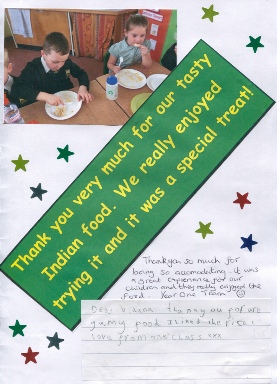 Thank you very much for our tasty
Indian food. We really enjoyed
trying it and it was a special treat!
Thankyou so much for
being so accomodating. It was
a great experience for our
children and they really enjoyed the
food. Year One Team
thank you for our
yumy food I liked the rice.
love from one class xxx